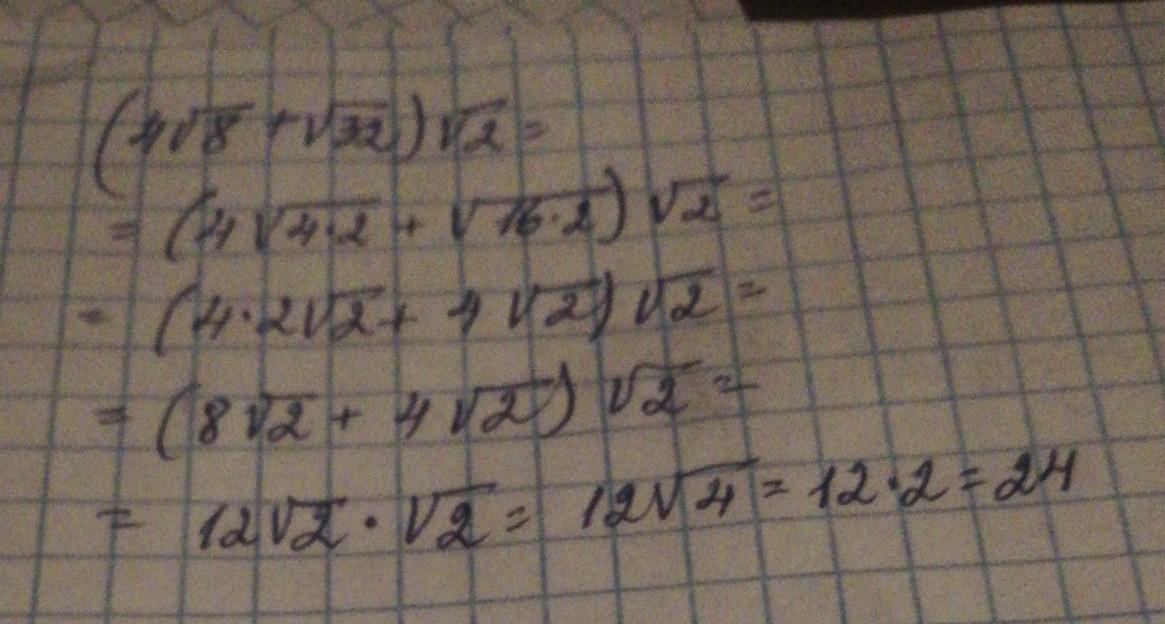 (4√8 + √32)√2 =
= (4√4·2 + √16·2) √2 =
= (4·2√2 + 4√2) √2 =
= (8√2 + 4√2) √2 =
= 12√2 · √2 = 12√4 = 12·2 = 24